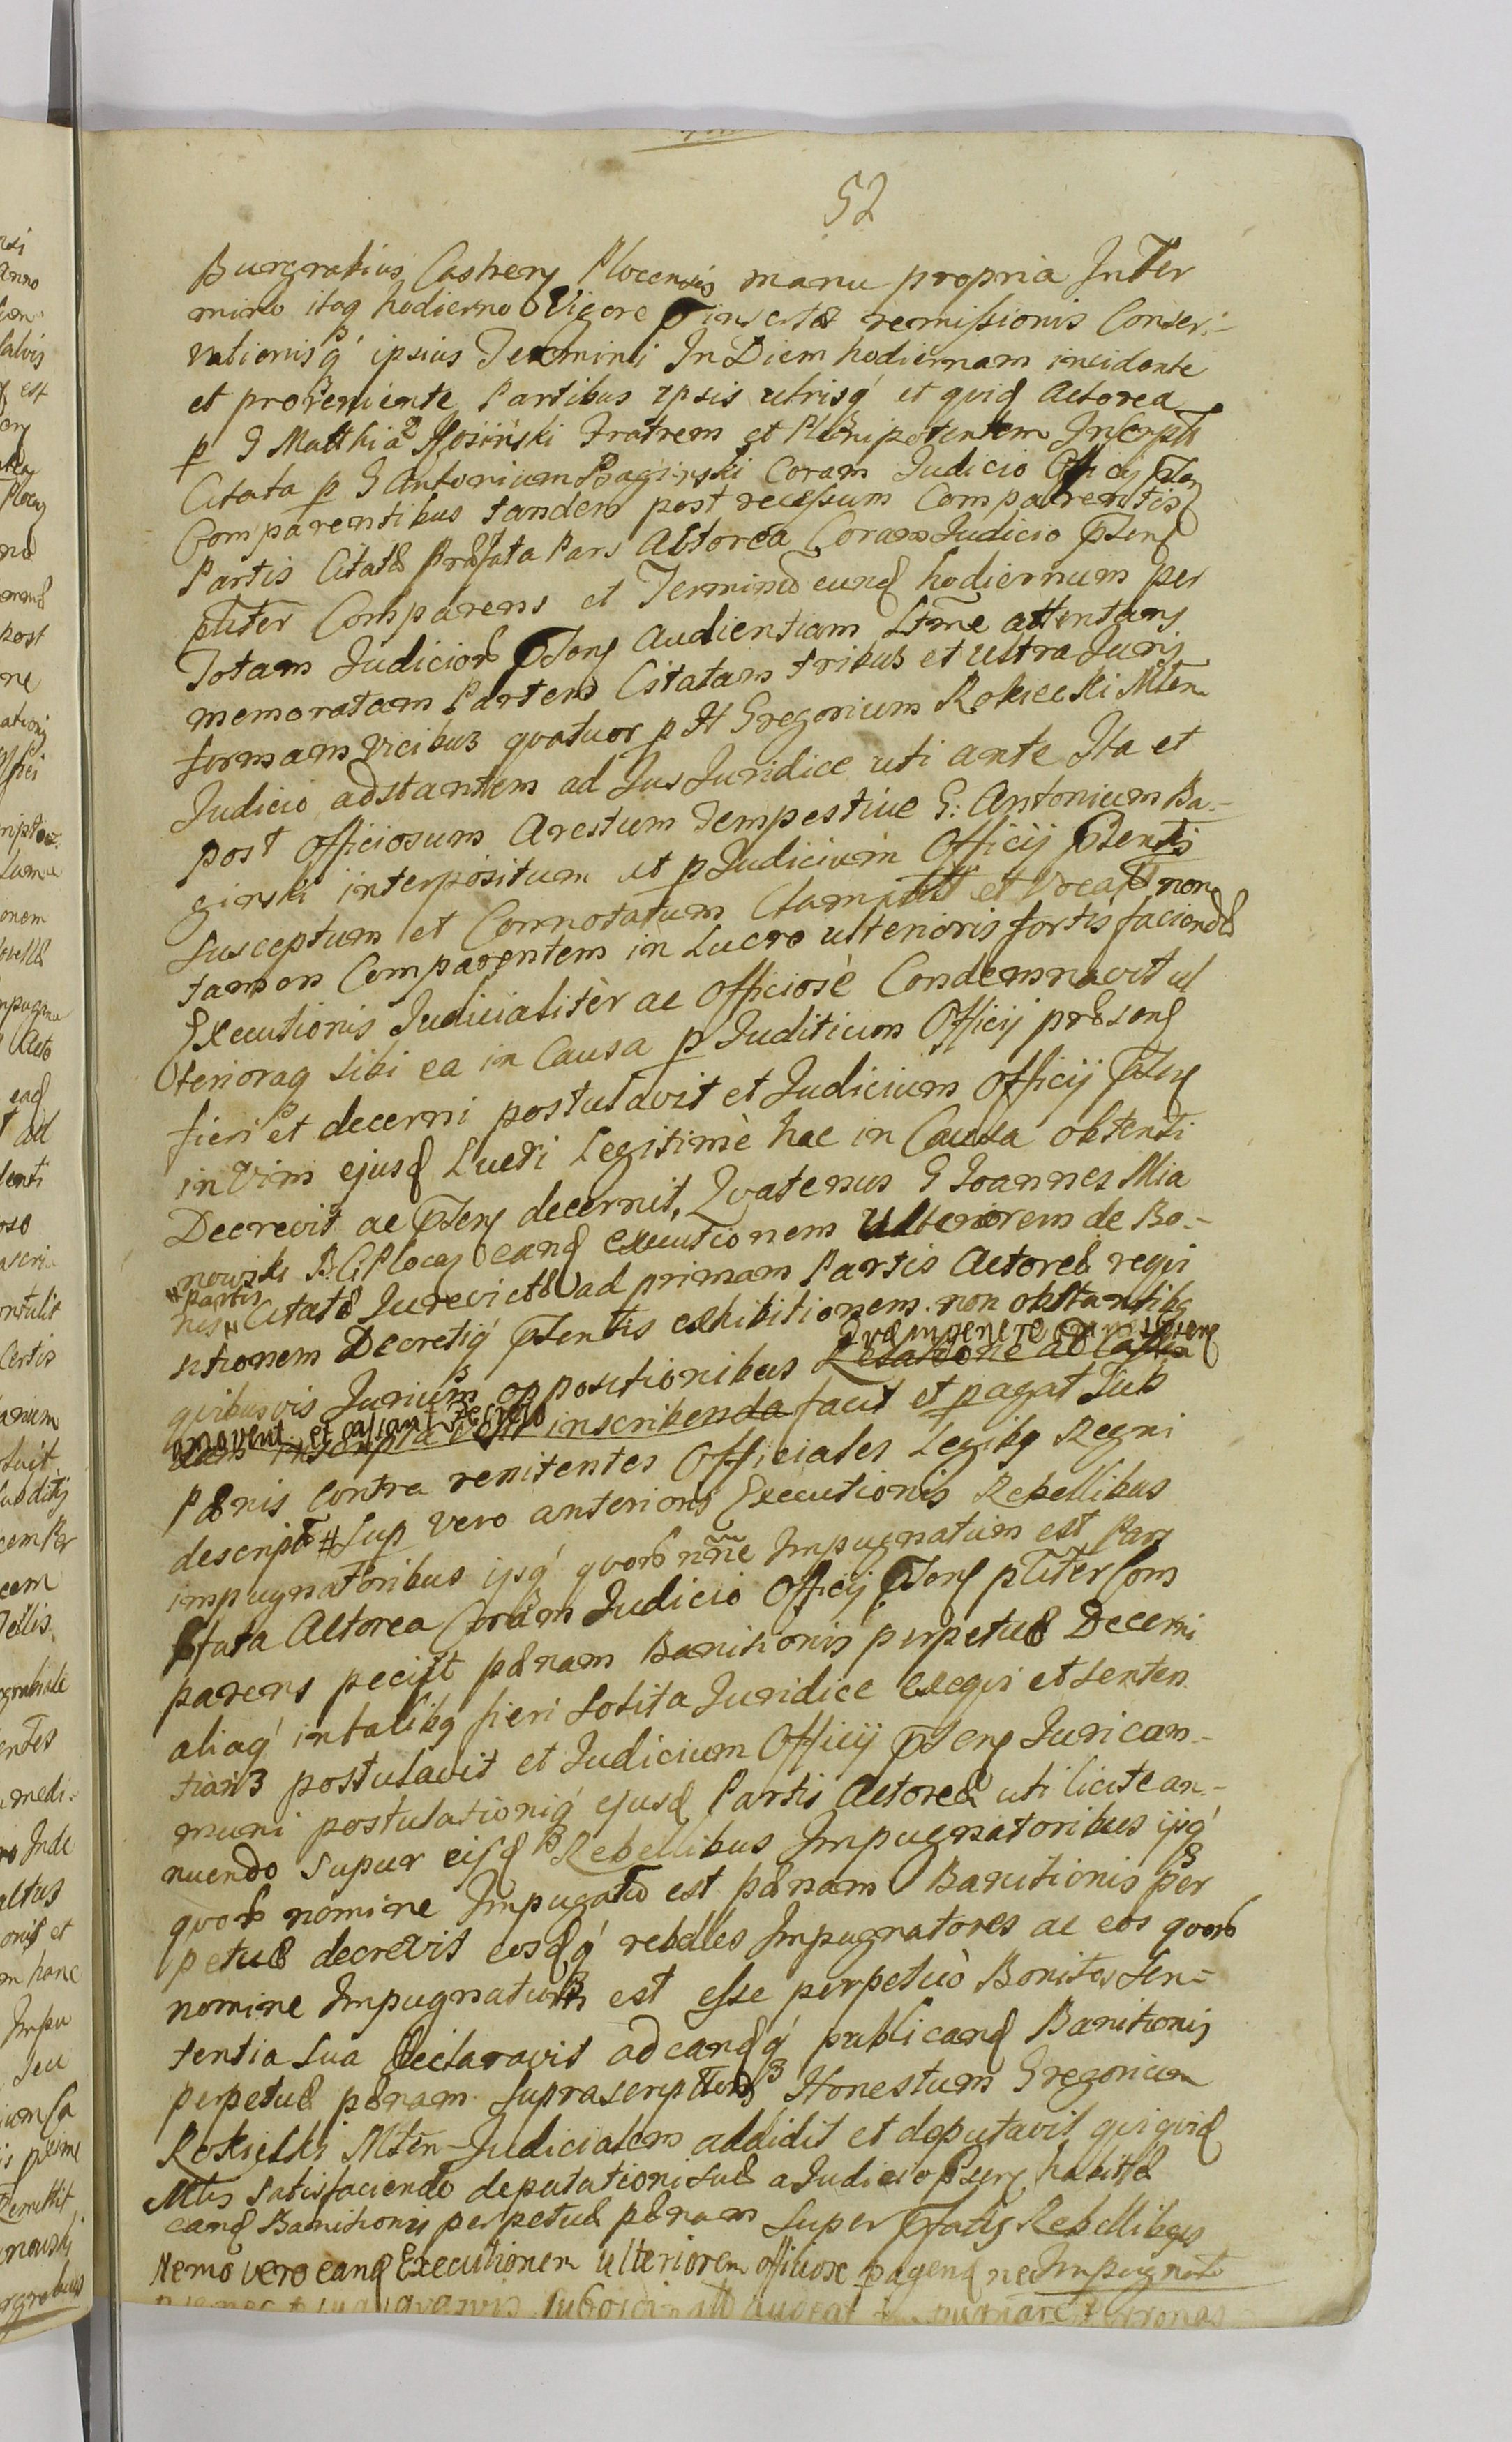 52
Burgrabius Castren Plocensis manu propria In Ter
mino itaq hodierno Vigore insertæ remissionis Conser-
vationisq́ ipsius Termini In Diem hodiernam incidente
et proveniente Partibus ipsis utrisq́ et quid Actorea
p G Matthia Rosiński Fratrem et Plenipotentem Inscript
Citata p G Antonium Baginski Coram Judicio Officij pnten
Comparentibus tandem post recessum Comparentis
Partis Citatæ Præfata Pars Actorea Coram Judicio pnten
pliter Comparens et Terminũ eund hodiernum per
Totam Judiciorũ pnten Audientiam Ltme attentans
memoratam Partem Citatam tribus et ultra Juris
formam Vicibus quatuor p H Gregorium Rokicki Mten
Judicio adstantem ad Jus Juridice uti ante Ita et
post officiosum Arestum Tempestive G: Antonium Ba-
ginski interpositum et p Judicium Officij pntentis
Susceptum et Connotatum Clamat et Vocat non
tamen Comparentem in Lucro ulterioris fortis faciendæ
Executionis Judicialitèr ac Officiosè Condemnavit ul
terioraq sibi ea in Causa p Juditium Officij præsens
fieri et decerni postulavit et Judicium Officij pnten
in Vim ejusd Lucri Legitimè hac in Causa obtenti
Decrevit ac pnten decernit, Quatenus G Joannes Mia
nowski B. C. Plocen eand executionem Ulteriorem de Bo-
nis # Partis Citatæ Jurevictæ ad primam Partis Actoreæ requi
sitionem Decretiq́ pntentis exhibitionem non obstantibq
quibusvis Jurium oppositionibus Relatione ad Castra
inscribenda faciat et pagat Sub
Pænis contra renitentes Officiales Legibq Regni
descript # Sup vero anterioris Executionis Rebellibus
impugnatoribus ijsq́ quorũ nñe Impugnatum est Pars
pfata Actorea Coram Judicio Officij pnten pliter Com
parens peciit pænam Banitionis perpetuæ Decerni
aliaq́ in talibq fieri Solita Juridice exegi et senten
tiari postulavit et Judicium Officij pnten Juri com-
muni postulationiq́ ejusd Partis Actoreæ uti licite an-
nuendo supur eisd Rebellibus Impugnatoribus ijsq́
quorũ nomine Impugatũ est pænam Banitionis per
petuæ decrevit eosdq́ rebelles Impugnatores ac eos quorũ
nomine Impugnatum est esse perpetuò Bonitos Sen-
tentia Sua declaravit ad eandq́ publicand Banitionis
perpetuæ pænam suprascriptum Honestum Gregorium
Rokicki Mten Judicialem addidit et deputavit qui quid
Mtis satisfaciendo deputationi suæ a Judicio pnten habitæ
eand Banitionis perpetuæ pænam super pfatis Rebellibus
Nemo vero eand Executionem ulteriorem officiose pagend